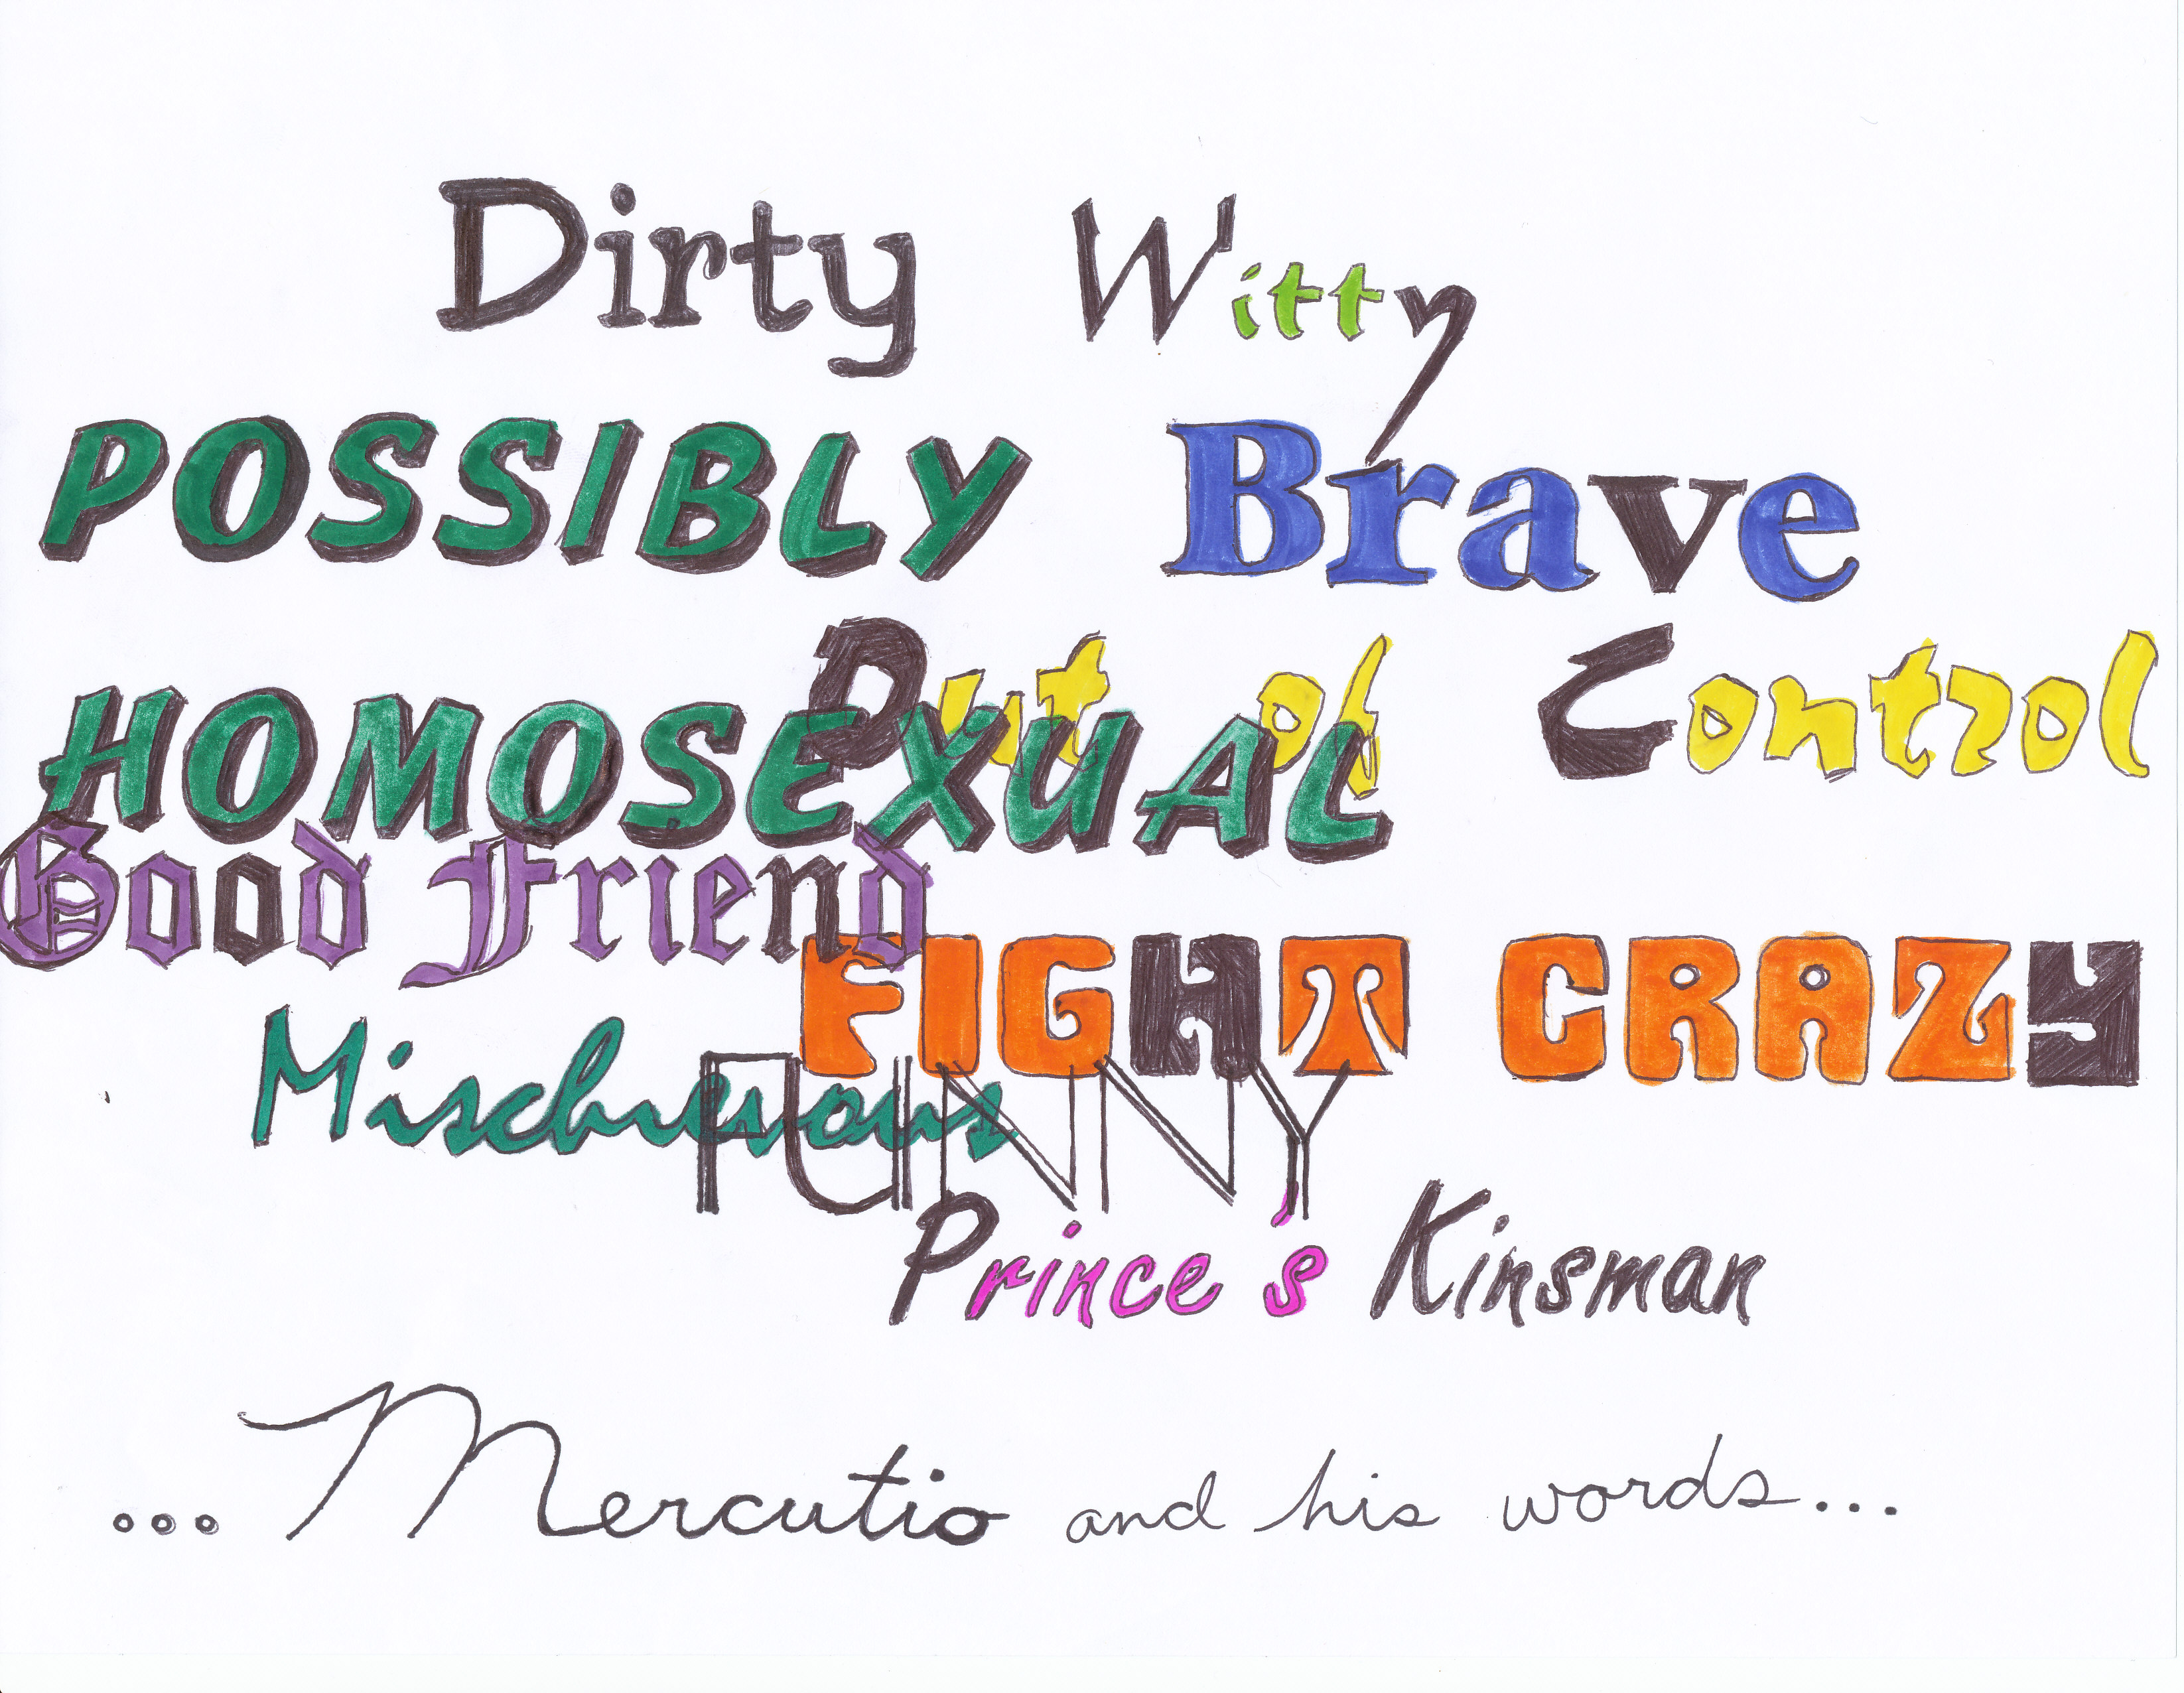 Dirty Witty
POSSIBLY Brave
Out of Control
HOMOSEXUAL
Good Friend
FIGHT CRAZY
Mischievous
FUNNY
Prince's Kinsman
...Mercutio and his words...